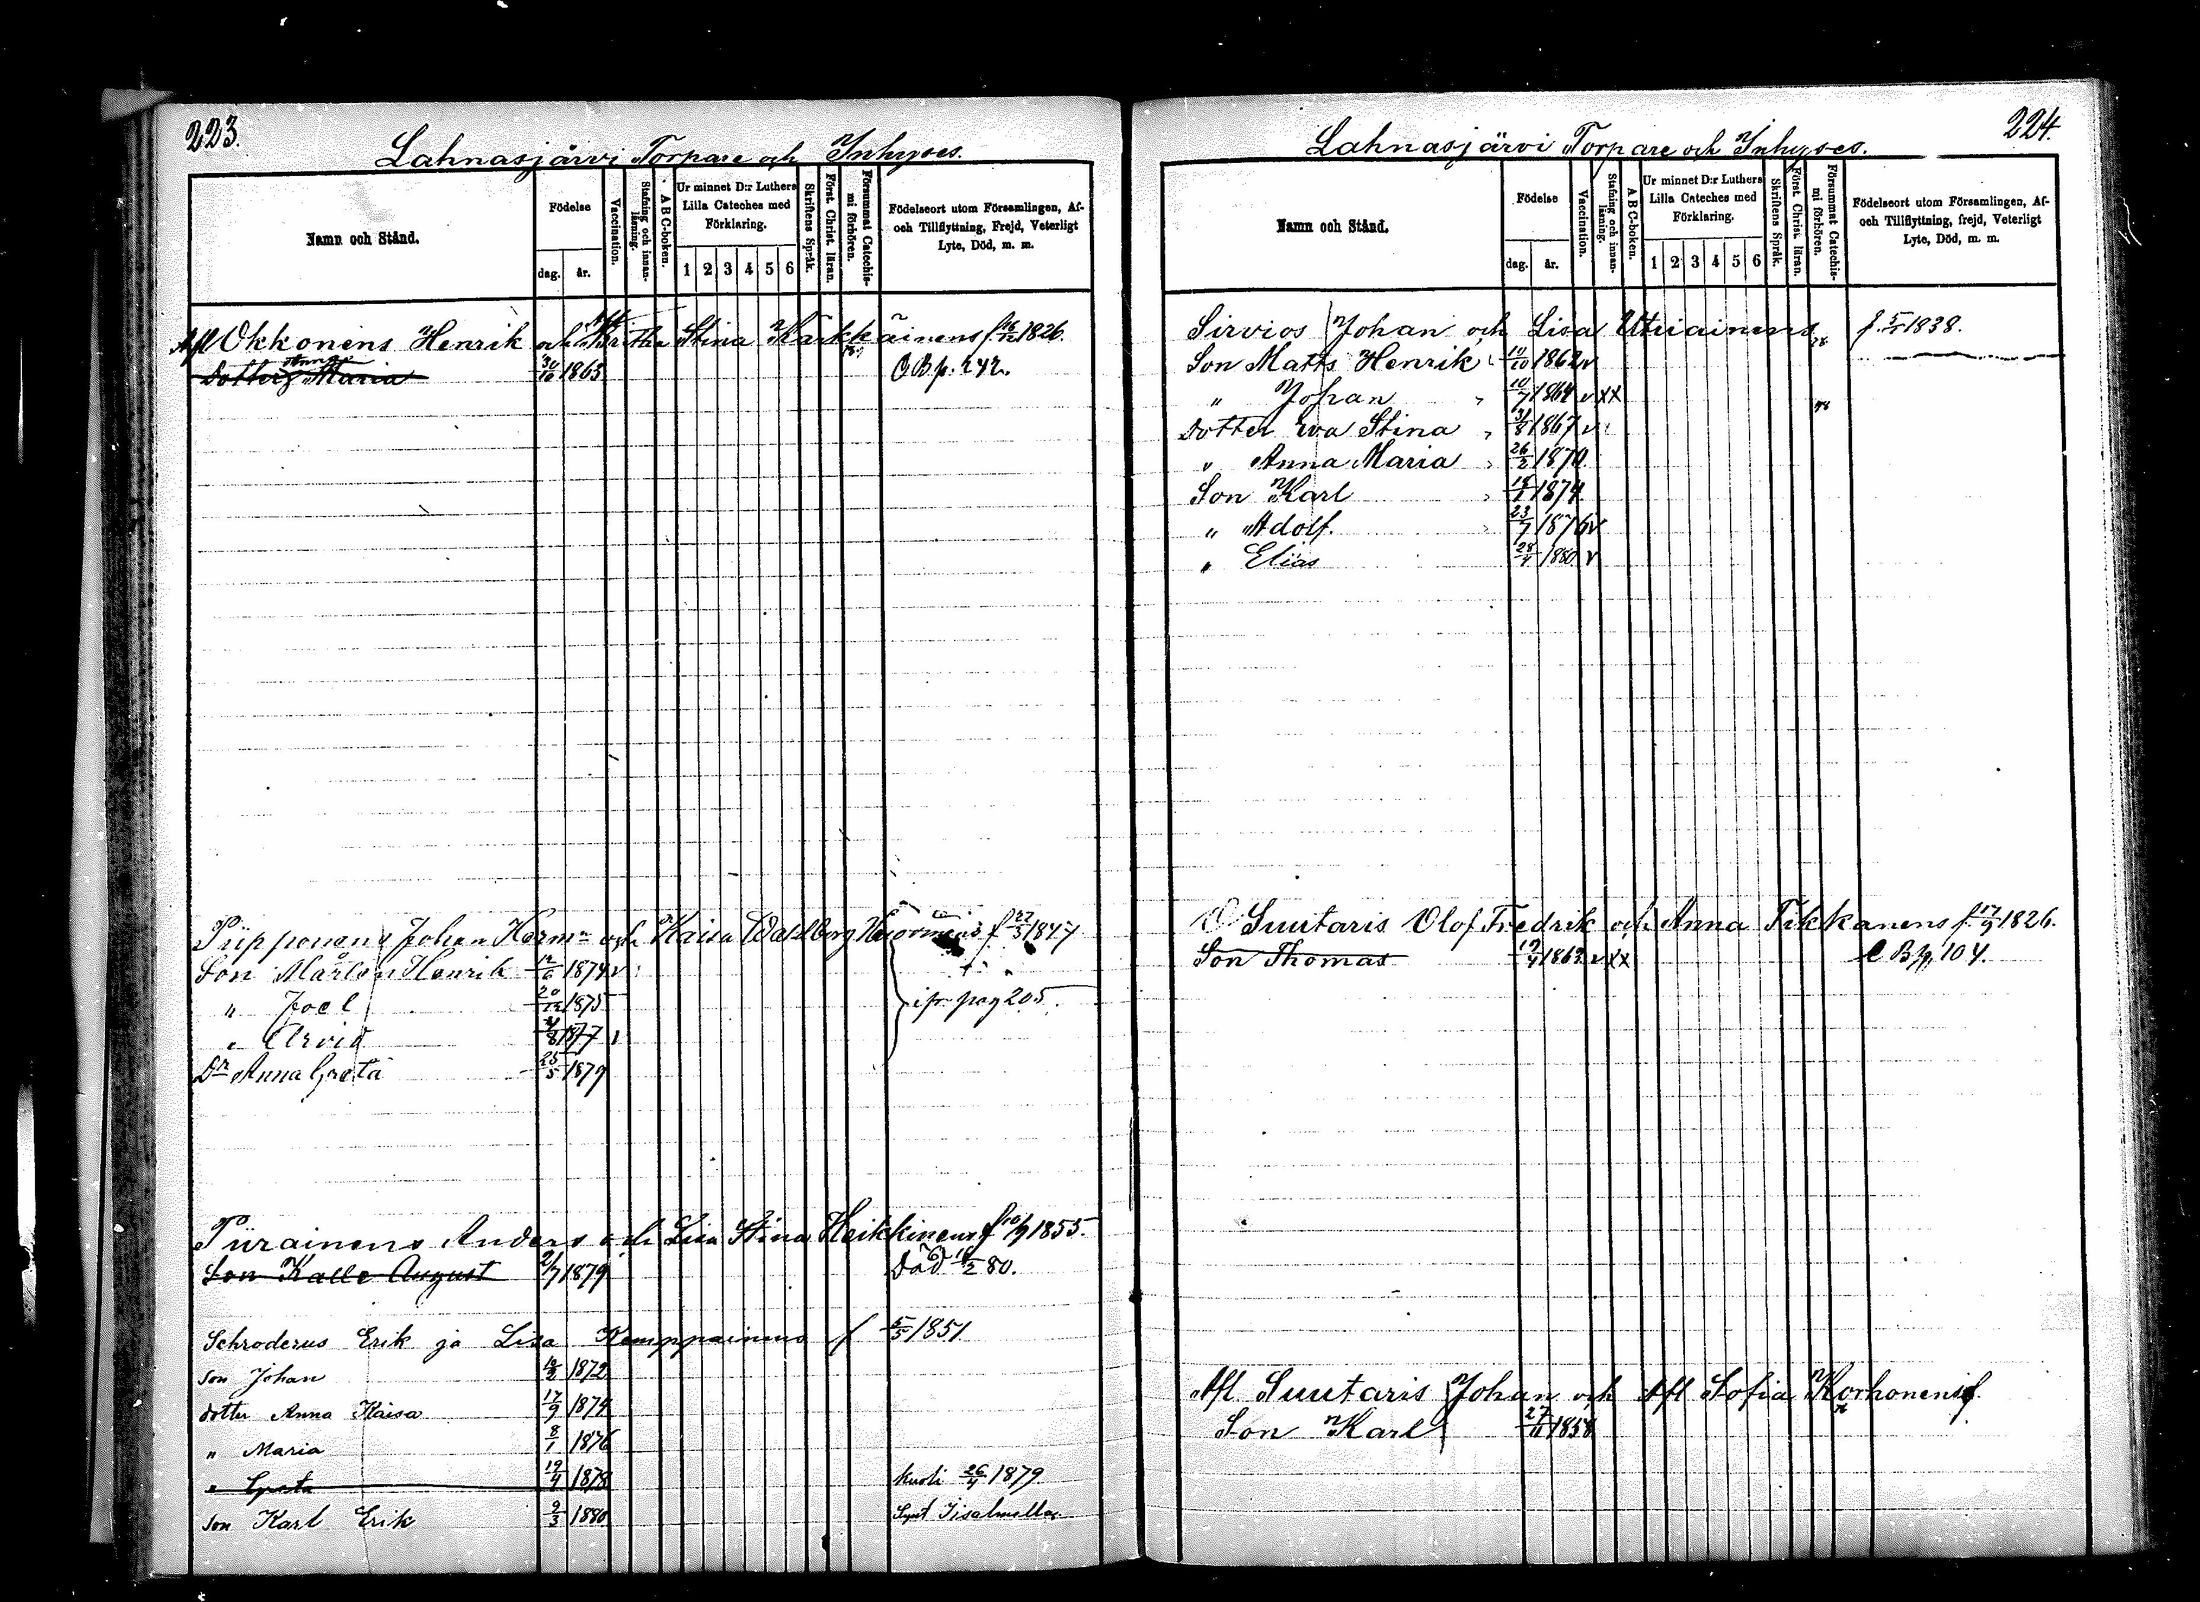 223.
Lahnasjärvi Torpare och Inhyses.
Namn och Stånd.
Födelse
dag. år.
Vaccination.
Stafning och innan-läsning.
A B C-boken.
Ur minnet D:r Luthers
Lilla Cateches med
Förklaring.
1 2 3 4 5 6
Skriftens Språk.
Först. Christ. läran.
Försummat Catechis-mi förhören.
Födelseort utom Församlingen, Af-
och Tillflyttning, Frejd, Veterligt
Lyte, Död, m. m.
Afl Okkonens Henrik och Afl Britha Stina Karkkäinens f. 16/12 1826.
Dotter Anna Maria 30/10 1863 O B p. 242.
Piipponens Johan Herm:n och Kaisa Wahlberg f 22/3 1847
Son Mårten Henrik 12/6 1874 v
" Joel 20/12 1875 ifr. pag 205.
" Arvid 1877
D:r Anna Greta 25/5 1879
Piirainens Anders och Lisa Stina Heikkinens f 10/9 1855.
Son Kalle August 2/7 1879 Död 18/2 80.
Schroderus Erik ja Lisa Kemppainens f 5/5 1851
Son Johan 1872
dotter Anna Kaisa 17/9 1874
" Maria 8/1 1876
" Greta 19/4 1878 kuoli 26/4 1879
Son Karl Erik 9/3 1880 Synt Iisalmella
224.
Lahnasjärvi Torpare och Inhyses.
Namn och Stånd.
Födelse
dag. år.
Vaccination.
Stafning och innan-läsning.
A B C-boken.
Ur minnet D:r Luthers
Lilla Cateches med
Förklaring.
1 2 3 4 5 6
Skriftens Språk.
Först. Christ. läran.
Försummat Catechis-mi förhören.
Födelseort utom Församlingen, Af-
och Tillflyttning, frejd, Veterligt
Lyte, Död, m. m.
Sirvios Johan och Lisa Utriainens f. 1838.
Son Matts Henrik 10/10 1862 v
" Johan 10/7 1864 v xx
Dotter Eva Stina 31/8 1867 v
" Anna Maria 26/2 1870.
Son Karl 1874
" Adolf. 23/7 1876 v
" Elias 28/4 1880 v
Suutaris Olof Fredrik och Anna Tikkanens f. 17/9 1826.
Son Thomas 19/4 1863 v xx C B p. 104.
Afl Suutaris Johan och Afl Sofia Korhonens f.
Son Karl 27/11 1858